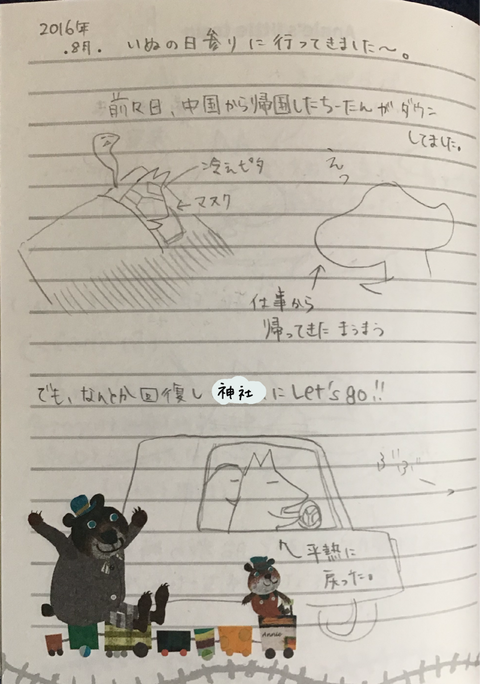 2016年
.8月.
いぬの日参りに行ってきました〜。
前々日、中国から帰国したちーたんがダウン
してました。
冷えピタ
マスク
えっ
仕事から
帰ってきた まうまう
でも、なんとか回復し 神社 にLet's go!!
平熱に
戻った。
Annie